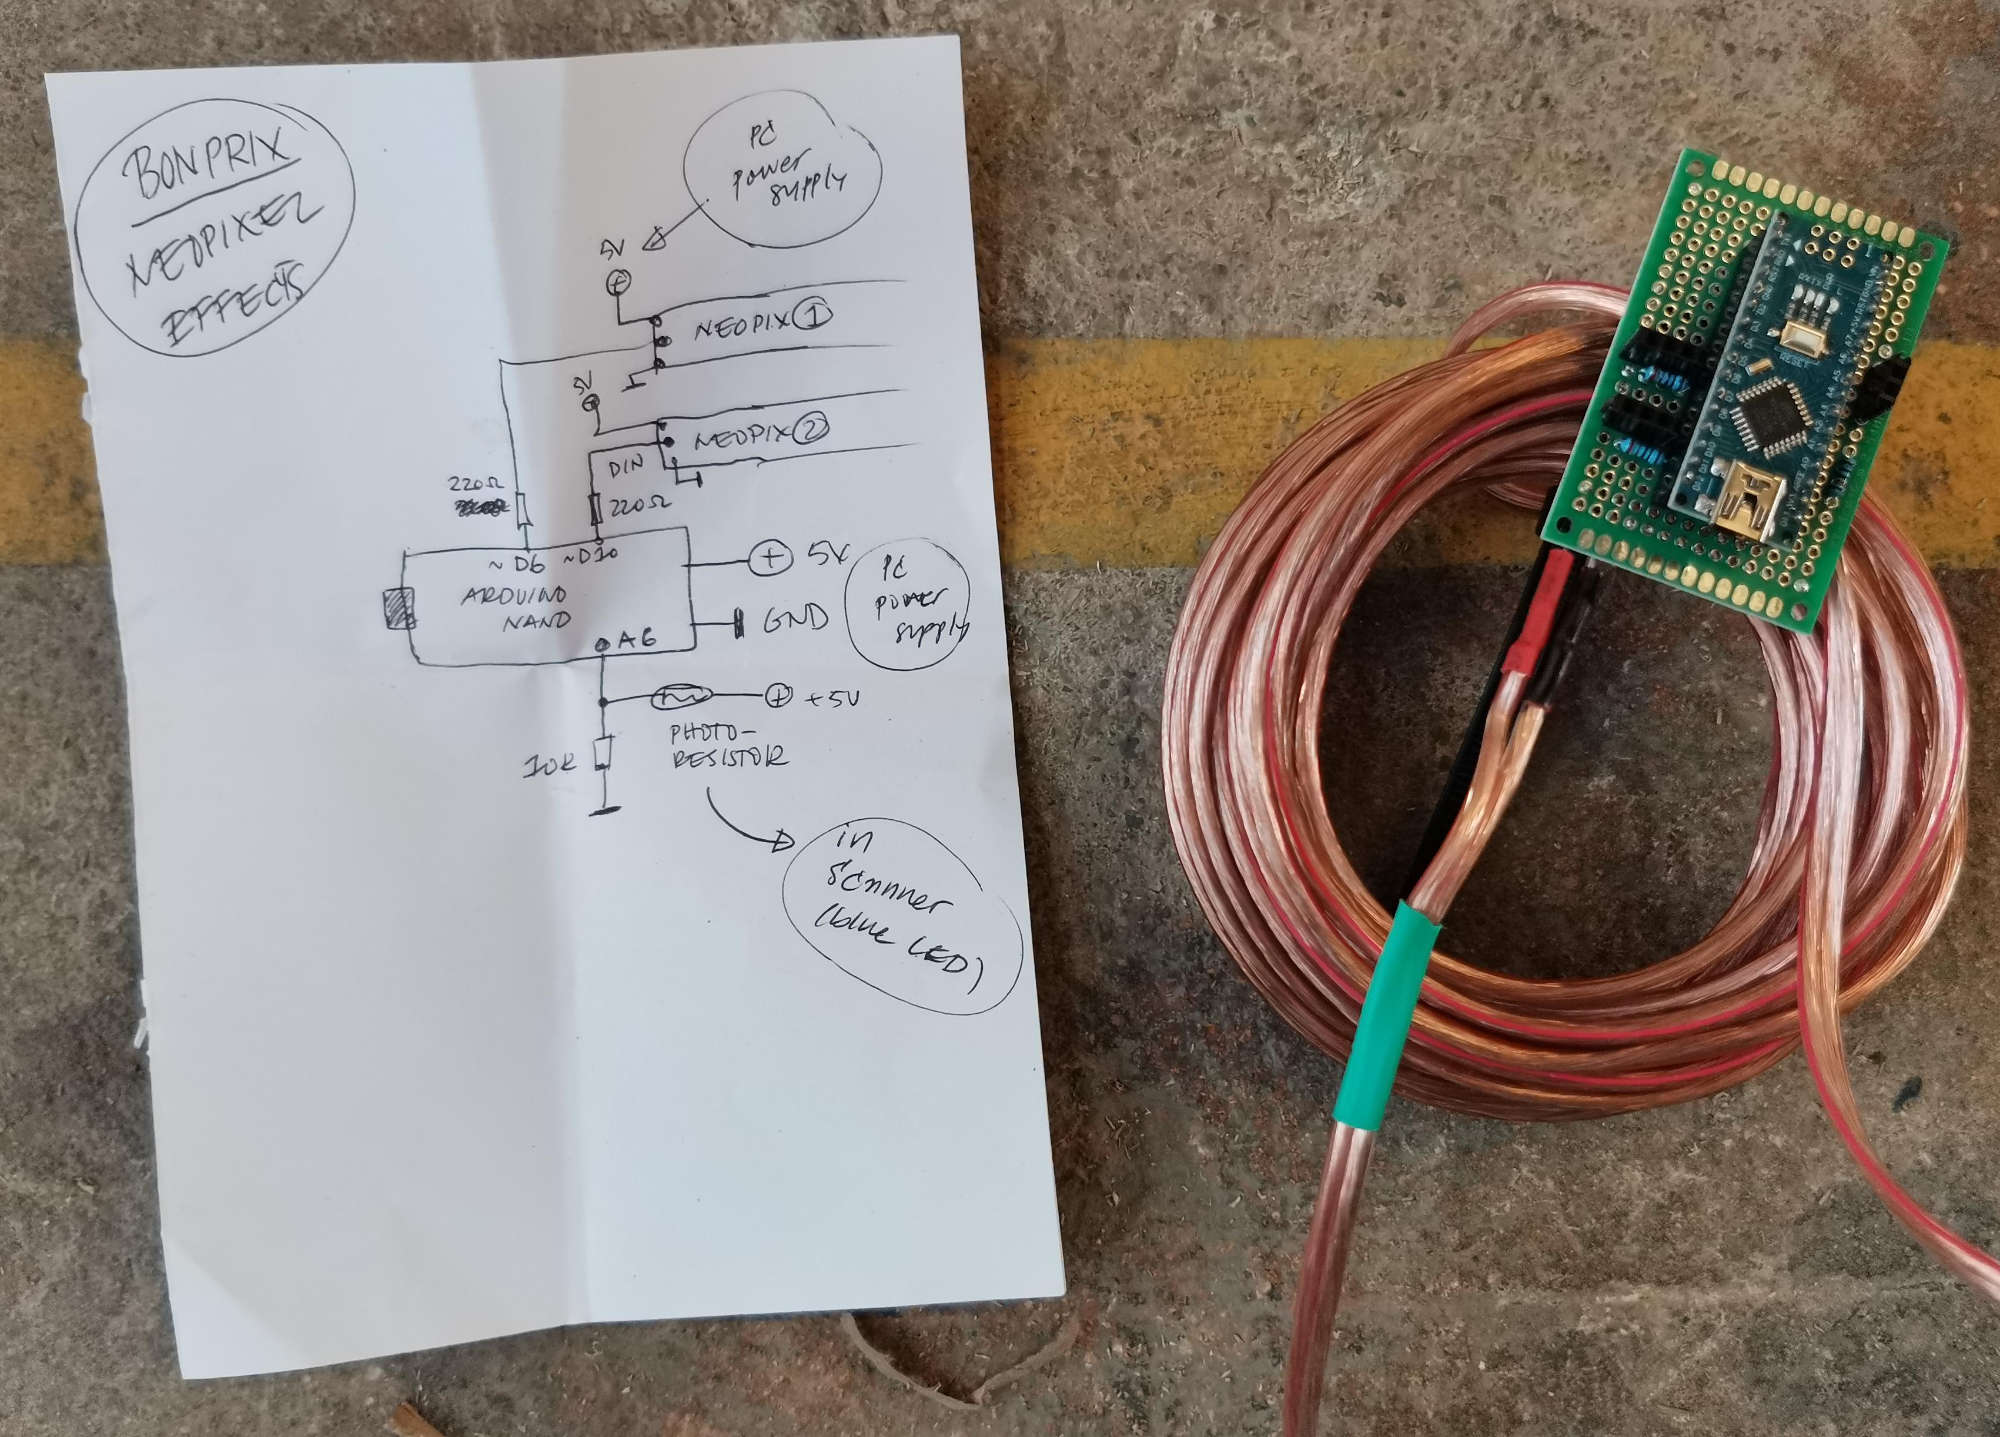 BONPRIX
NEOPIXEL
EFFECTS
PC
power
supply
5V
NEOPIX 1
5V
NEOPIX 2
DIN
220Ω
220Ω
~D6
~D10
ARDUINO
NANO
A6
5V
GND
PC
power
supply
+5V
PHOTO-
RESISTOR
10K
in
scanner
(blue LED)
RESET